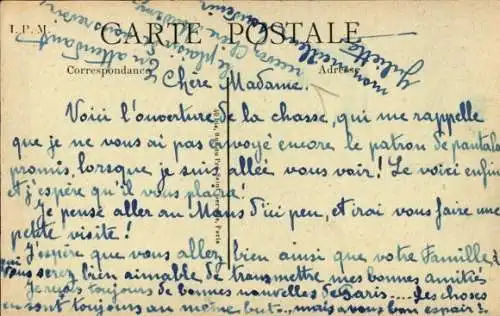 I. P. M.
CARTE POSTALE
Correspondance
Adresse
Chère Madame.
Voici l'ouverture de la chasse, qui me rappelle
que je ne vous ai pas envoyé encore le patron de pantalon
promis, lorsque je suis allée vous voir! Le voici enfin
et j'espère qu'il vous plaira!
Je pense aller au Mans d'ici peu, et irai vous faire une
petite visite!
J'espère que vous allez bien ainsi que votre famille, à
qui vous serez bien aimable de transmettre mes bonnes amitiés
Je reçois toujours de bonnes nouvelles de Paris.... Les choses
en sont toujours au même but... mais a-vous bon espoir?
En attendant
le plaisir de
recevez chère
mon meilleur
souvenir
Juliette